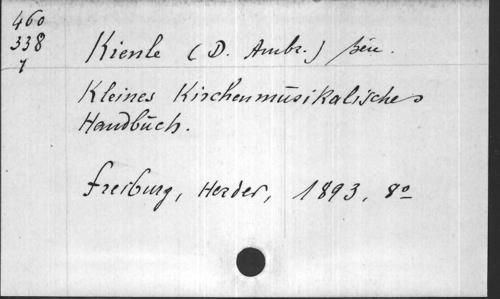 460
338
7
Kienle (D. Ambr.) bén.
Kleines Kirchenmusikalisches
Handbuch.
Freiburg, Herder, 1893, 8°